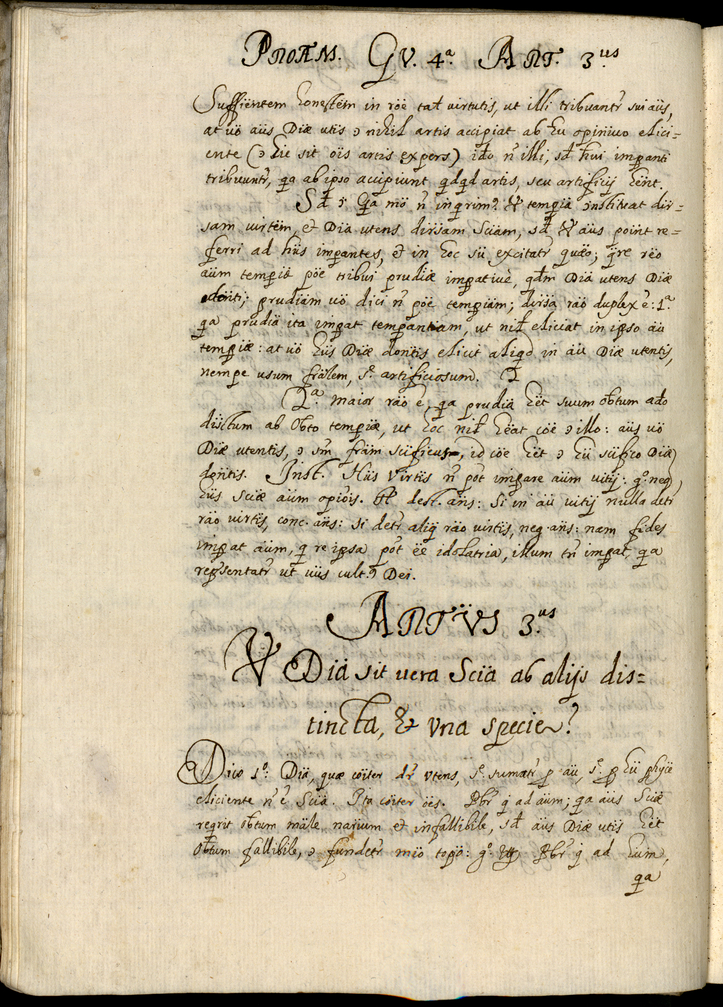 Prooem. Qu. 4.ª Art. 3.us
Suffientem honestem in rõe tał virtutis, ut illi tribuantr sui aüs,
at uö aüs Diæ utis ɔ nihil artis accipiat ab hu opiniuo elici=
ente (ɔ hic sit öis artis expers) ido ñ illi, sd hui impanti
tribuuntr, qa ab ipso accipiunt qdqd artis, seu artificij hënt.
Sd Qa mö ñ inqrim? tempia instituat dir=
sam virtëm, et Dia utens dirsam Sciam, sd aüs point re=
ferri ad hüs impantes, et in hoc sü excitatr quæo; qre rëo
aüm tempiæ pöe tribui prudiæ impatiuè, qdm Dia utens Diæ
donti; prudiam uö dici ñ pöe tempiam; dirsa räo duplex ë: 1.ª
qa prudia ita impat temperantiam, ut nihl eliciat in ipso äu
tempiæ: at uö hüs Diæ dontis elicit aliqd in äu Diæ utentis,
nempe usum frälem, s. artificiosum.
2.ª maior räo ë, qa prudia hët suum obtum ado
distctum ab obto tempiæ, ut hoc nihl hëat cöe ɔ illo: aüs uö
Diæ utentis, ɔ sm främ scificus, id cöe hët ɔ hü scifico Diæ
dontis. Inst. Hüs virtis ñ pöt impare aüm vitij: go neq
hüs sciæ aüm opiöis. dest. añs: Si in äu vitij nulla detr
räo virtis, conc. añs: si detr aliq räo virtis, neg. añs: nam fides
impat äum, q re ipsa pöt ëe idolatria, illum tñ impat, qa
repsentatr ut uüs cult.9 Dei.
Artüs 3.us
V Dia sit uera Scia ab alijs dis=
tincta, & vna specie?
Dico 1.º Dia, quæ cöiter dr vtens, s. sumatr p äu, s. p hü phyce
eliciente ñ ë Scia. Ita cöiter öes. Pbr q ad äum; qa aüs Sciæ
reqrit obtum mäle, narium et infallibile, sd aüs Diæ utis hët
obtum fallibile, ɔ fundetr mïo topo: go Pbr q ad hum,
qa